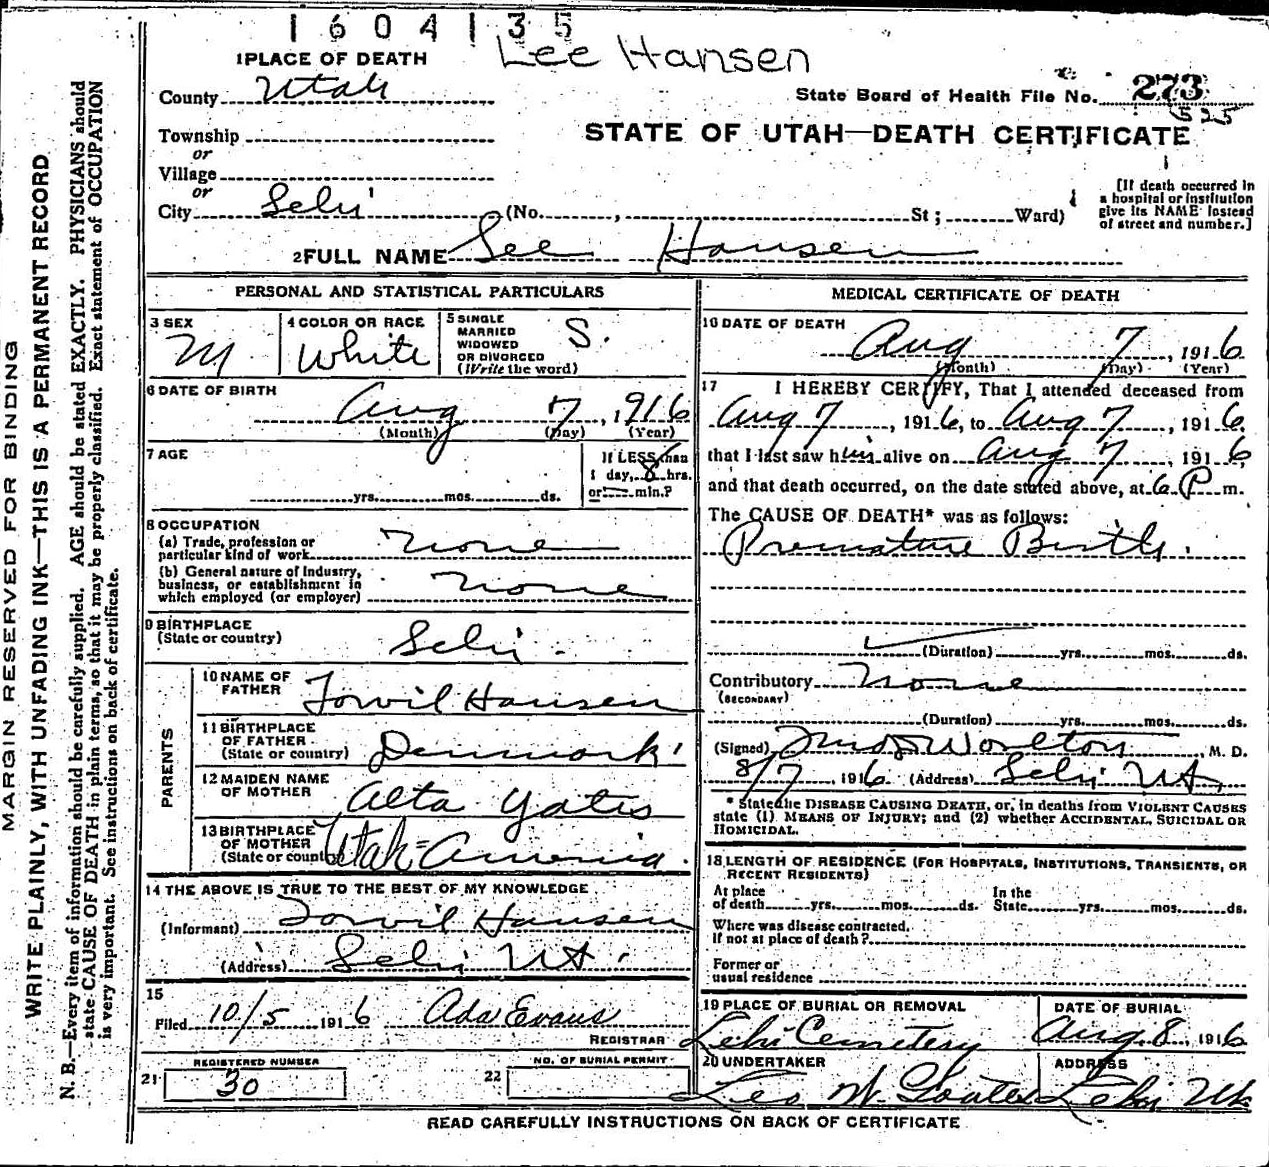 1604135
Lee Hansen
1 PLACE OF DEATH
County Utah
State Board of Health File No. 273
525
STATE OF UTAH—DEATH CERTIFICATE
Township
or
Village
or
City Lehi (No. , St ; Ward)
[If death occurred in
a hospital or institution
give its NAME instead
of street and number.]
2 FULL NAME Lee Hansen
PERSONAL AND STATISTICAL PARTICULARS
3 SEX
M
4 COLOR OR RACE
White
5 SINGLE
MARRIED
WIDOWED
OR DIVORCED
(Write the word)
S.
6 DATE OF BIRTH
Aug 7, 1916
(Month) (Day) (Year)
7 AGE
yrs. mos. ds.
If LESS than
1 day, 8 hrs.
or min.?
8 OCCUPATION
(a) Trade, profession or
particular kind of work none
(b) General nature of Industry,
business, or establishment in
which employed (or employer) none
9 BIRTHPLACE
(State or country) Lehi.
PARENTS
10 NAME OF
FATHER Torvil Hansen
11 BIRTHPLACE
OF FATHER
(State or country) Denmark
12 MAIDEN NAME
OF MOTHER Alta Yates
13 BIRTHPLACE
OF MOTHER
(State or country) Utah America.
14 THE ABOVE IS TRUE TO THE BEST OF MY KNOWLEDGE
(Informant) Torvil Hansen
(Address) Lehi Ut.
15
Filed 10/5 1916 Ada Evans
REGISTRAR
REGISTERED NUMBER
21 30
NO. OF BURIAL PERMIT
22
MEDICAL CERTIFICATE OF DEATH
16 DATE OF DEATH
Aug 7, 1916
(Month) (Day) (Year)
17 I HEREBY CERTIFY, That I attended deceased from
Aug 7, 1916, to Aug 7, 1916,
that I last saw him alive on Aug 7, 1916,
and that death occurred, on the date stated above, at 6 P m.
The CAUSE OF DEATH* was as follows:
Premature Birth.
(Duration) yrs. mos. ds.
Contributory None
(SECONDARY)
(Duration) yrs. mos. ds.
(Signed) Worlton, M. D.
8/7, 1916 (Address) Lehi Ut,
* State the DISEASE CAUSING DEATH, or, in deaths from VIOLENT CAUSES
state (1) MEANS OF INJURY; and (2) whether ACCIDENTAL, SUICIDAL OR
HOMICIDAL.
18 LENGTH OF RESIDENCE (FOR HOSPITALS, INSTITUTIONS, TRANSIENTS, OR
RECENT RESIDENTS)
At place
of death yrs. mos. ds.
In the
State yrs. mos. ds.
Where was disease contracted.
If not at place of death?
Former or
usual residence
19 PLACE OF BURIAL OR REMOVAL
Lehi Cemetery
DATE OF BURIAL
Aug. 8, 1916
20 UNDERTAKER
Leo W. Goates
ADDRESS
Lehi Ut
READ CAREFULLY INSTRUCTIONS ON BACK OF CERTIFICATE
MARGIN RESERVED FOR BINDING
WRITE PLAINLY, WITH UNFADING INK—THIS IS A PERMANENT RECORD
N. B.—Every item of information should be carefully supplied. AGE should be stated EXACTLY. PHYSICIANS should
state CAUSE OF DEATH in plain terms, so that it may be properly classified. Exact statement of OCCUPATION
is very important. See instructions on back of certificate.